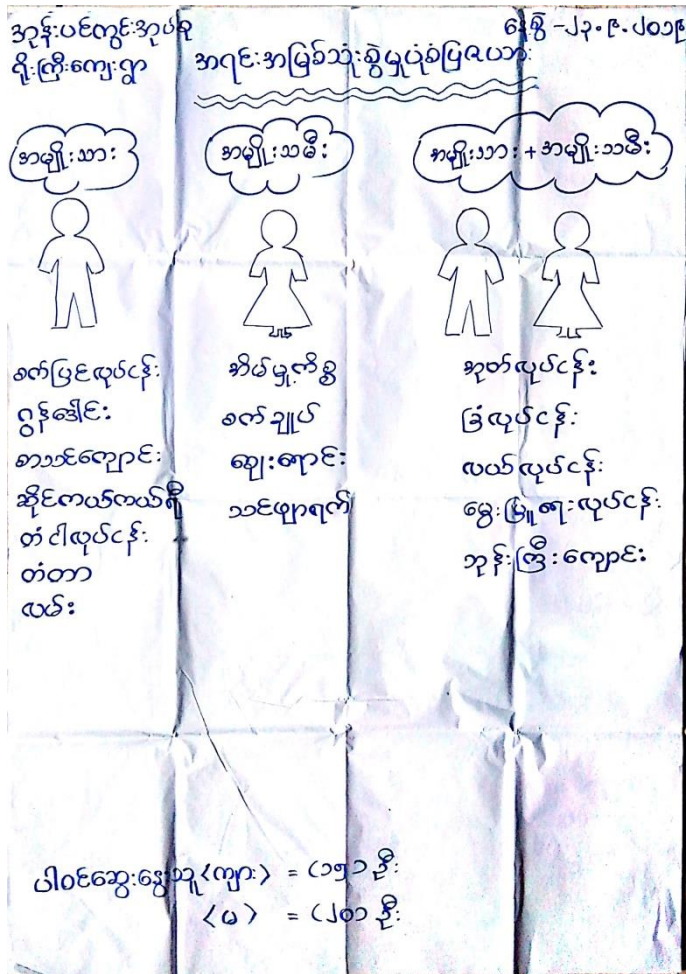 အုန်းပင်ကွင်းအုပ်စု
ရိုးကြီးကျေးရွာ
နေ့စွဲ -၂၃.၉.၂၀၁၉
အရင်းအမြစ်သုံးစွဲမှုပုံစံပြဇယား
အမျိုးသား
အမျိုးသမီး
အမျိုးသား + အမျိုးသမီး
စက်ပြင်လုပ်ငန်း
ဂွန်ဒေါင်း
စာသင်ကျောင်း
ဆိုင်ကယ်ကယ်ရီ
တံငါလုပ်ငန်း
တံတာ
လမ်း
အိမ်မှုကိစ္စ
စက်ချုပ်
ဈေးရောင်း
သင်ဖျာရက်
အုတ်လုပ်ငန်း
ခြံလုပ်ငန်း
လယ်လုပ်ငန်း
မွေးမြူရေးလုပ်ငန်း
ဘုန်းကြီးကျောင်း
ပါဝင်ဆွေးနွေးသူ (ကျား) = (၁၅) ဦး
(မ) = (၂၀) ဦး